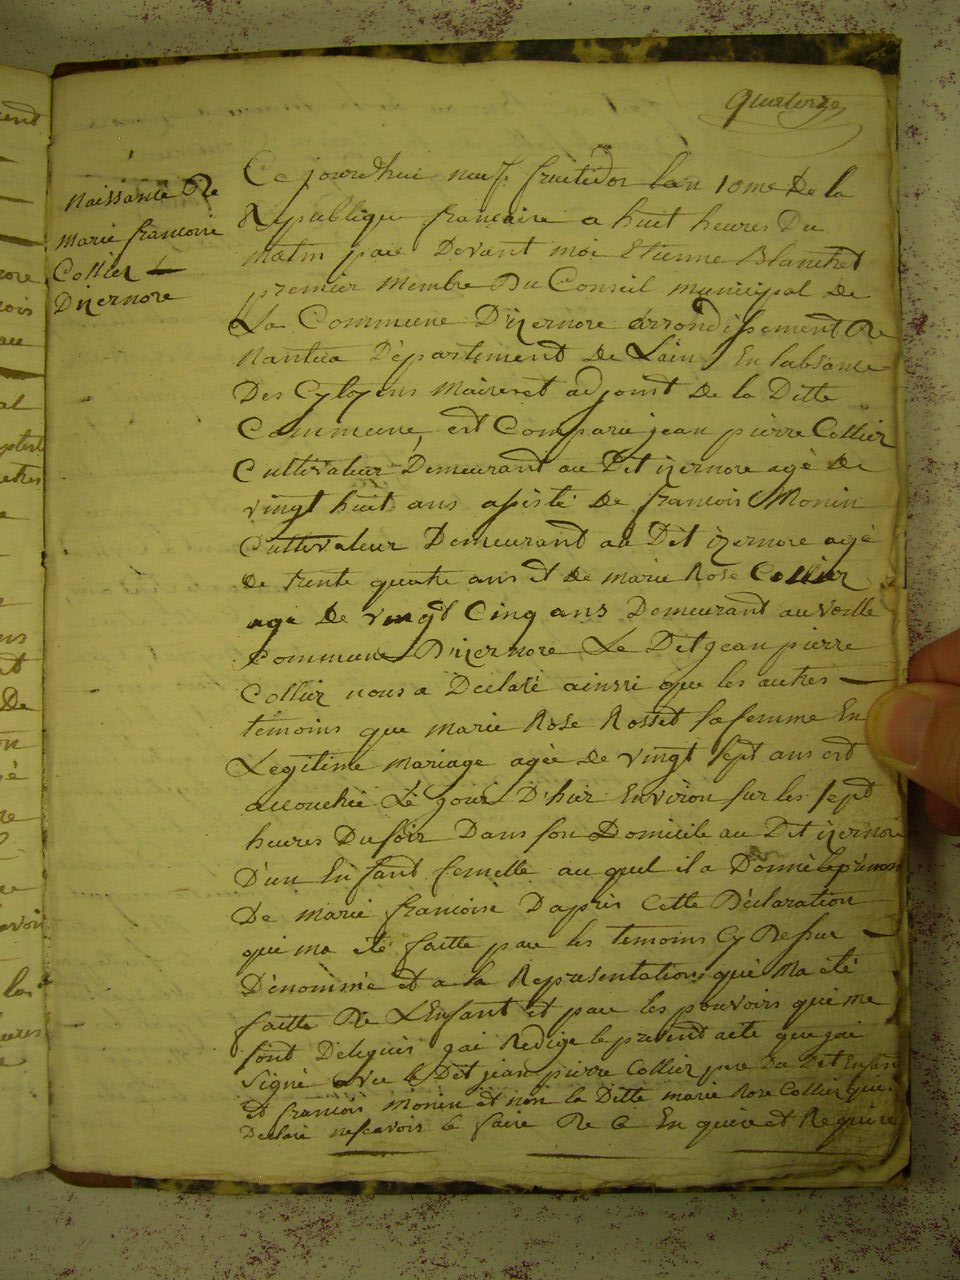 quatorze
Naissance De
Marie francoise
Collier
Dizernore
Ce jourdhui neuf fructidor lan 10me De la
Republique francaise a huit heures Du
Matin par Devant moi Etienne Blanchet
premier Membre Du Conseil municipal de
La Commune D'izernore arrondissement De
Nantua Département De Lain En labsance
Des Cytoyens Maire et adjoint De la Ditte
Commune, est Comparu jean pierre Collier
Cultivateur Demeurant au Dit izernore agé De
vingt huit ans assisté De francois Monin
Cultivateur Demeurant au Dit izernore agé
de trente quatre ans et De marie Rose Collier
agé De vingt Cinq ans Demeurant au
Commune D'izernore Le Dit jean pierre
Collier nous a Declaré ainsi que les autres
temoins que Marie Rose Rosset sa femme En
Legitime Mariage agée De vingt sept ans est
accouchée Le jour D'hier Environ sur les sept
heures Du soir Dans son Domicile au Dit izernore
D'un Enfant femelle au quel il a Donné le prénom
De marie francoise D'après Cette Déclaration
qui ma été faitte par les temoins Cy Dessur
Dénommé et a la Representation qui Ma été
faitte De L'Enfant et par les pouvoirs qui me
sont Delegués jai Redigé le present acte que jai
Signé avec le Dit jean pierre Collier pere Du Dit Enfant
et francois Monin et non la Ditte marie Rose Collier que
Declaré ne scavoir le faire De Ce Enquire et Require